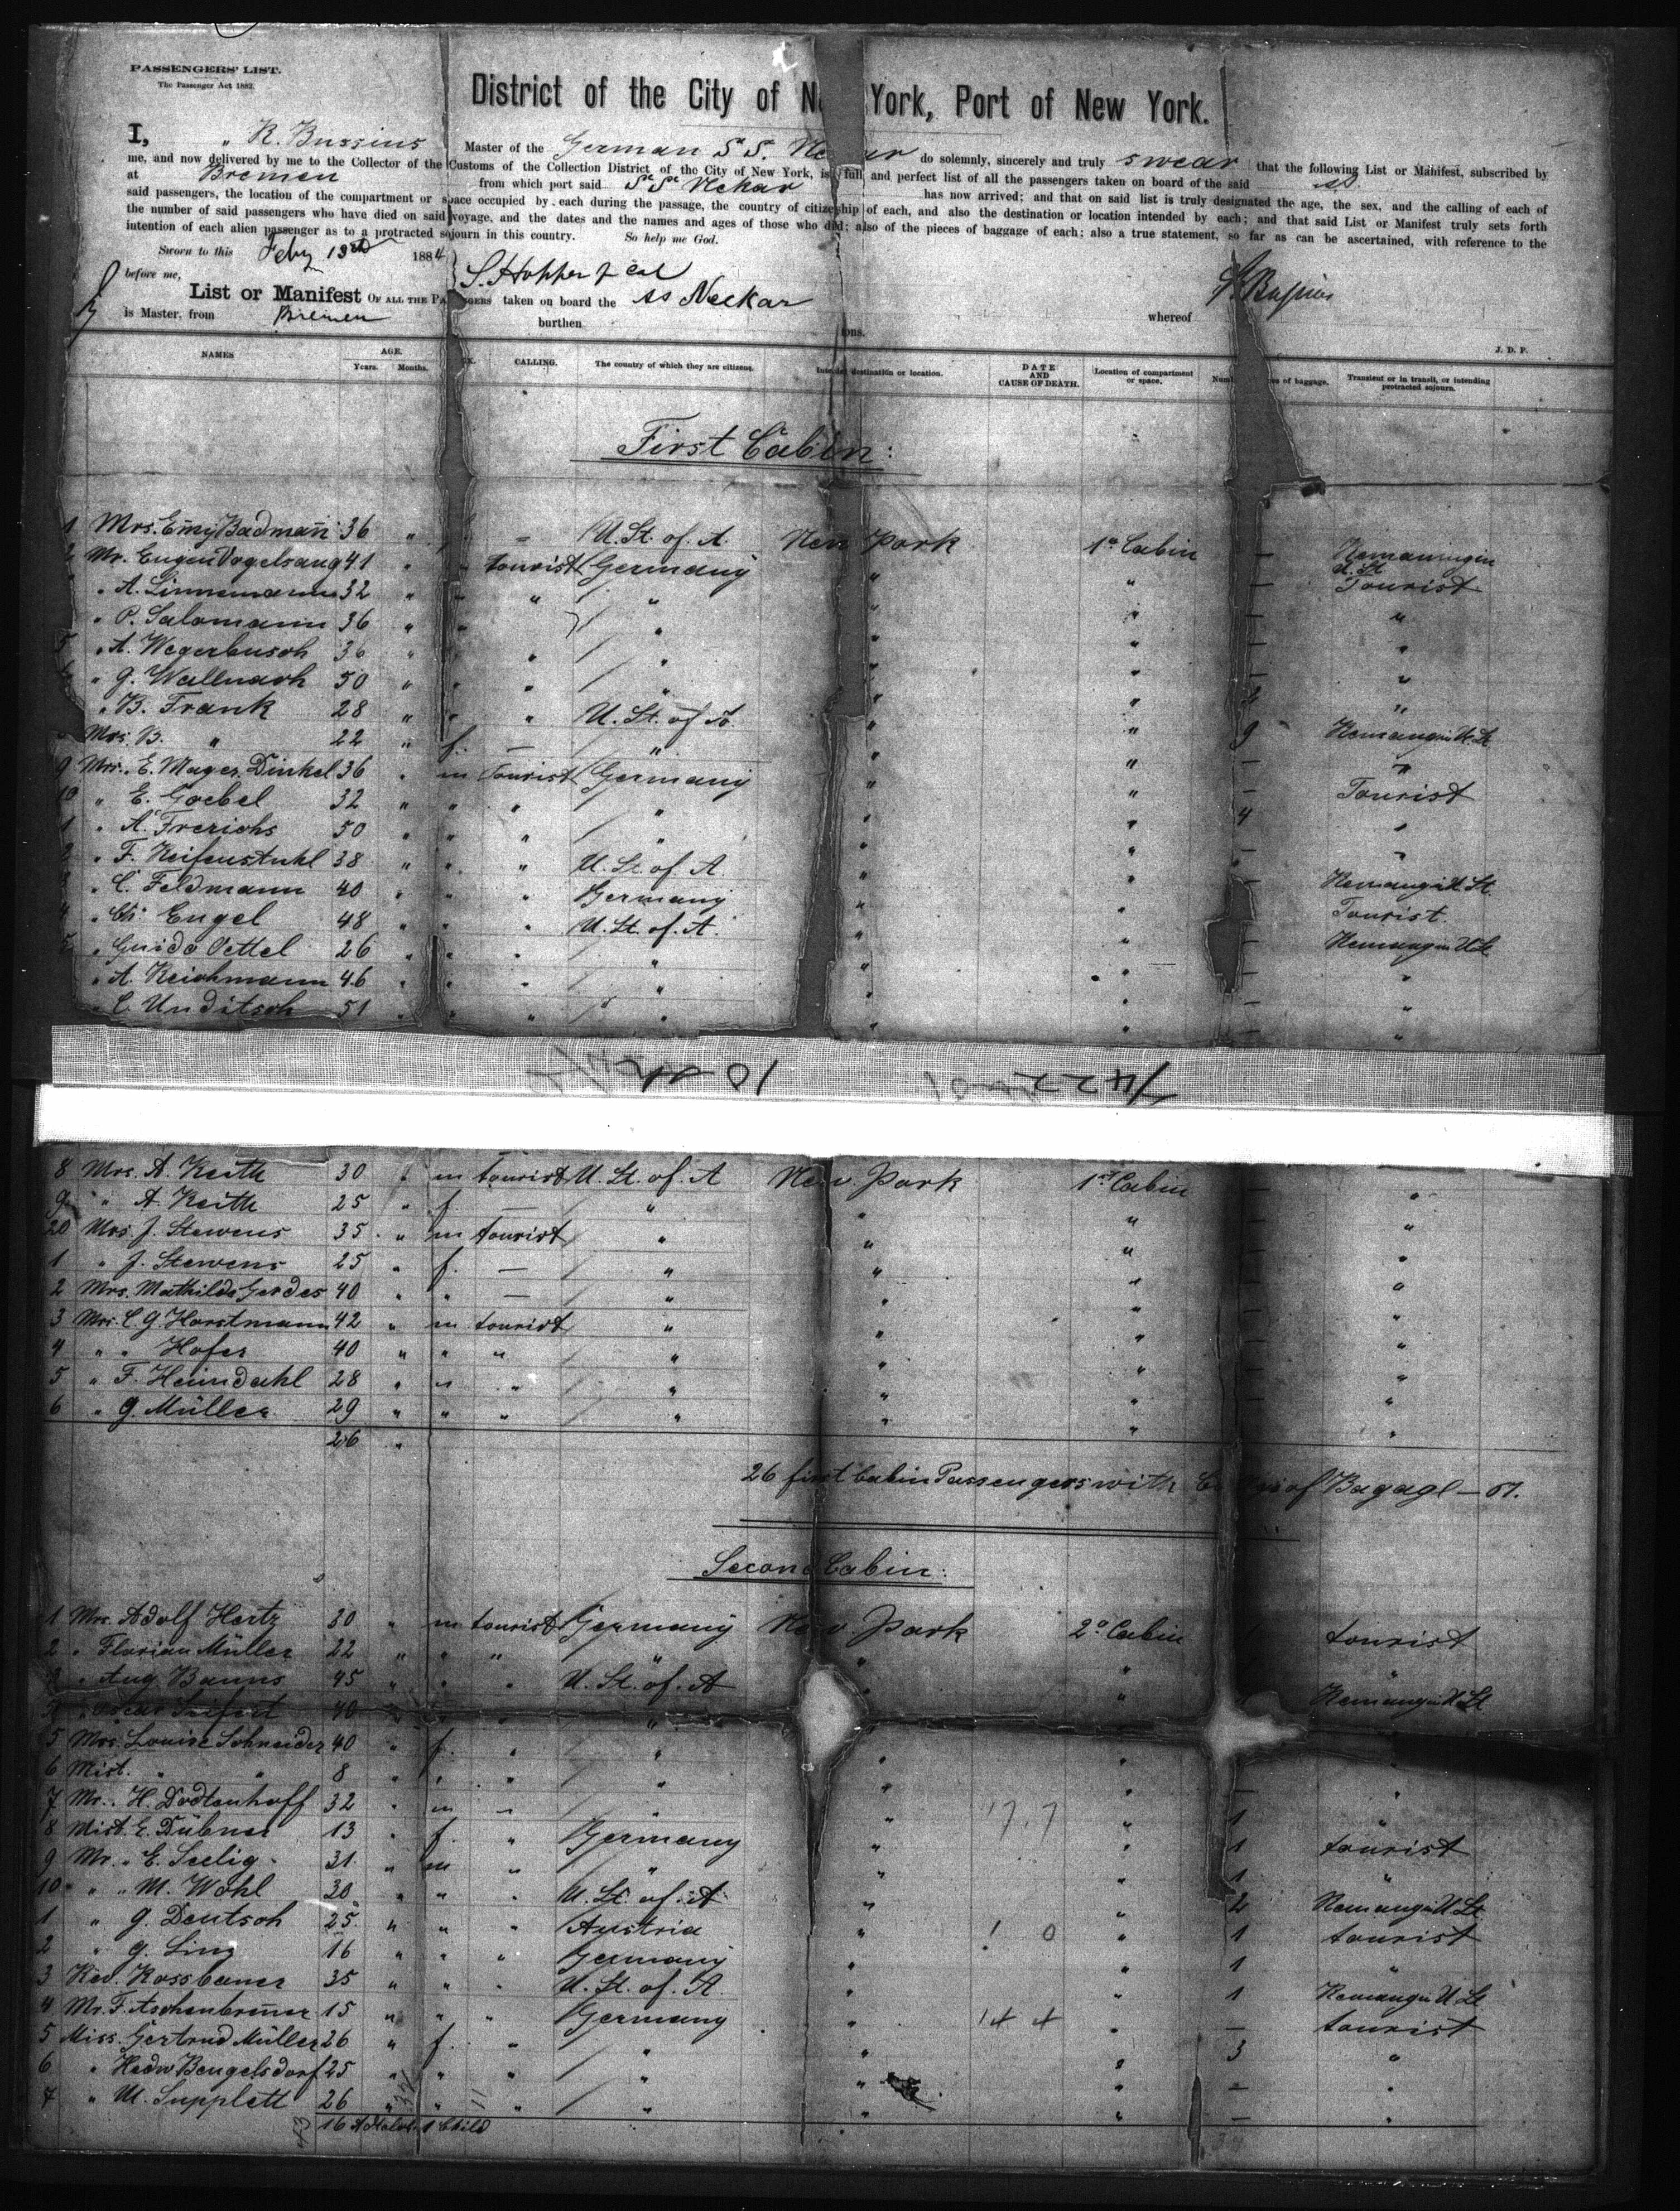 PASSENGERS' LIST.
The Passenger Act 1882.
District of the City of New York, Port of New York.
I, R. Bussius Master of the German S.S. Neckar do solemnly, sincerely and truly swear that the following List or Manifest, subscribed by
me, and now delivered by me to the Collector of the Customs of the Collection District of the City of New York, is a full and perfect list of all the passengers taken on board of the said SS.
at Bremen from which port said SS Nekar has now arrived; and that on said list is truly designated the age, the sex, and the calling of each of
said passengers, the location of the compartment or space occupied by each during the passage, the country of citizenship of each, and also the destination or location intended by each; and that said List or Manifest truly sets forth
the number of said passengers who have died on said voyage, and the dates and the names and ages of those who died; also of the pieces of baggage of each; also a true statement, so far as can be ascertained, with reference to the
intention of each alien passenger as to a protracted sojourn in this country. So help me God.
Sworn to this Feby 13th 1884
before me, S. Hopper
R. Bussius
List or Manifest OF ALL THE PASSENGERS taken on board the SS Neckar whereof
is Master, from Bremen burthen tons.
J. D. P.
NAMES AGE. Years. Months. SEX. CALLING. The country of which they are citizens. Intended destination or location. DATE AND CAUSE OF DEATH. Location of compartment or space. Number of pieces of baggage. Transient or in transit, or intending protracted sojourn.
First Cabin:
1 Mrs. Emy Badmañ 36 " f. — U. St. of. A. New York 1a Cabin —
2 Mr. Eugen Vogelsang 41 " " tourist Germany " " — Tourist
" A. Linnemann 32 " " " " " " — "
" P. Salomann 36 " " " " " — "
5 " A. Wegerbusch 36 " " " " " " — "
" G. Wallnach 50 " " " " " " 2 "
" B. Frank 28 " " " U. St. of A. " " 9 Remaing in U. St
Mrs. B. " 22 " f. — " " " — "
9 Mr. E. Mayer Dinkel 36 " m tourist Germany " " — Tourist
10 " E. Goebel 32 " " " " " " 4 "
1 " A. Frerichs 50 " " " " " " — "
2 " F. Reifenstuhl 38 " " " U. St. of A " " — Remaing in U. St.
3 " C. Feldmann 40 " " " Germany " " Tourist
4 " Ch. Engel 48 " " " U. St. of. A. " " — Remaing in U. St
5 " Guido Oettel 26 " " " " " " — "
" A. Reichmann 46 " " " " " " — "
" C. Unditsch 51 " " " " " " — "
8 Mr. A. Keith 30 " m tourist U. St. of. A New York 1st Cabin — "
9 " A. Keith 25 " f. — " " " — "
20 Mr. J. Stewens 35 " m tourist " " " — "
1 " J. Stewens 25 " f. — " " " — "
2 Mrs. Mathilde Gerdes 40 " " — " " " — "
3 Mr. C. G. Horstmann 42 " m tourist " " " — "
4 " " Hofer 40 " " " " " " — "
5 " F. Heimdahl 28 " " " " " " — "
6 " G. Müller 29 " " " " " " "
26 "
26 first Cabin Passengers with of Bagage — 51.
Second Cabin:
1 Mr. Adolf Hertz 30 " m tourist Germany New York 2a Cabin tourist
2 " Florian Müller 22 " " " " " " "
3 " Aug. Banns 45 " " " U. St. of. A " " Remaing in U. St
4 " Oscar Seifert 40 " " " " "
5 Mrs. Louise Schneider 40 " f. " " " " "
6 Mist. " " 8 " " " " " " — "
7 Mr. H. Dodtenhoff 32 " m " " " " 1 "
8 Mist. E. Dübner 13 " f. " Germany " " 1 tourist
9 Mr. E. Seelig 31 " m " " " 1 "
10 " " M. Wohl 30 " " " U. St. of. A " " 2 Remaing in U St.
1 " G. Deutsch 25 " " " Austria " " 1 tourist
2 " G. Ling 16 " " " Germany " " 1 "
3 Rev. Rossbauer 35 " " " U. St. of. A. " " 1 Remaing in U St
4 Mr. F. Aschenbreñer 15 " " " Germany " " — tourist
5 Miss. Gertrud Müller 26 " f. " " " " 3 "
6 " Hedw Bengelsdorf 25 " " " " " " — "
7 " M. Supplett 26 " " " " " " — "
1 Child